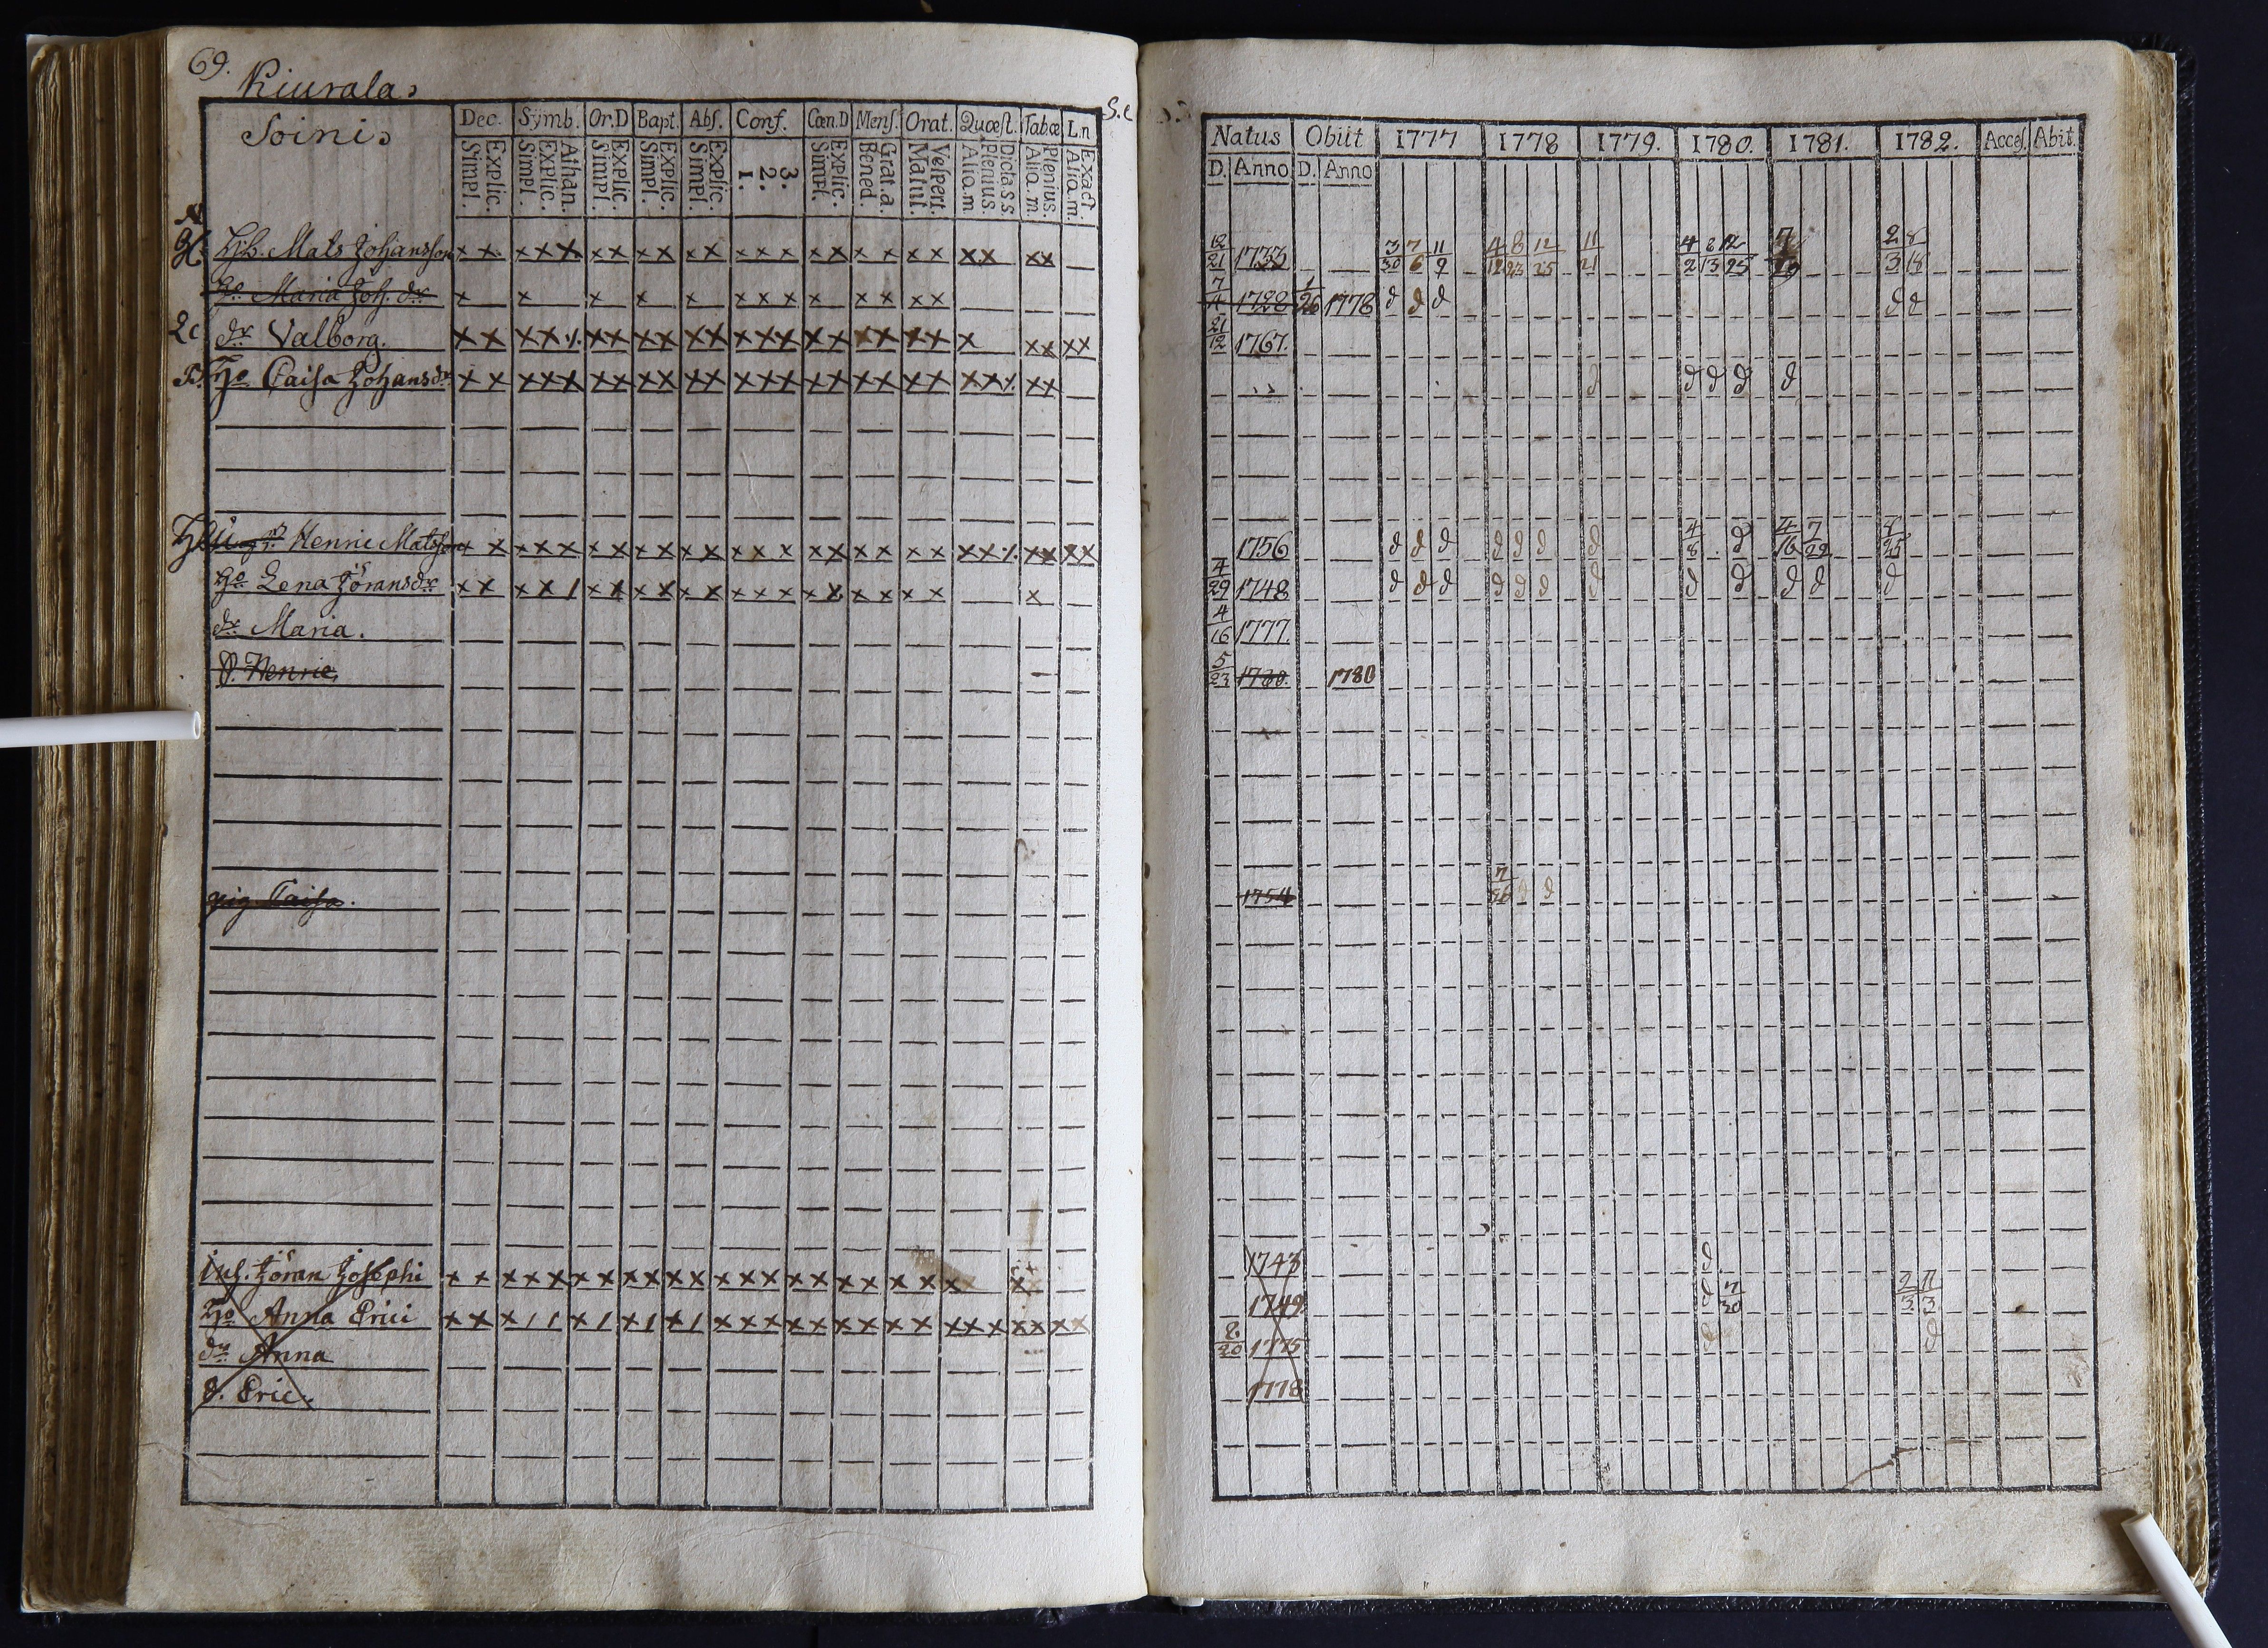 69.
Kiurala.
Soini.
S.c
Dec. Symb. Or.D Bapt. Abs. Conf. Cœn.D Mens. Orat. Quæst. Tab.œ L.n
Explic. Simpl. Athan. Explic. Simpl. Explic. Simpl. Explic. Simpl. Explic. Simpl. 3. 2. 1. Explic. Simpl. Grat.a. Bened. Vespert. Matut. Dicta s.s. Plenius. Aliq.m Plenius. Aliq.m. Exact. Aliq.m.
Hb. Mats Johansson x x x x x x x x x x x x x x x x x x x x x x x x x
Ho Maria Joh. dr x x x x x x x x x x x x x
Lc dr Valborg. x x x x ⁒ x x x x x x x x x x x x x x x x x x x x x
Ho Caisa Johansdr x x x x x x x x x x x x x x x x x x x x x x x ⁒ x x
Henric Matsson x x x x x x x x x x x x x x x x x x x x x x x ⁒ x x x x
Ho Lena Jöransdr x x x x / x x x x x x x x x x x x x x x x
dr Maria.
S. Henric.
pig Caisa.
Inh. Jöran Josephi x x x x x x x x x x x x x x x x x x x x x x x
Ho Anna Erici x x x / / x / x / x / x x x x x x x x x x x x x x x x
dr Anna
S. Eric.
Natus Obiit 1777 1778 1779. 1780. 1781. 1782. Acces. Abit.
D. Anno D. Anno
12/21 1733 3/30 7/6 11/9 4/12 8/23 12/25 11/21 4/2 8/13 12/25 7 2/3 8/18
7/4 1728 1/26 1778 d d d d d
21/12 1767.
d d d d d
1756 d d d d d d d 4/8 d 4/16 7/29 8/25
4/29 1748 d d d d d d d d d d d d
4/16 1777.
5/23 1780. 1780
1754 7/26 d d
1743 d
1749 d 7/30 2/3 11/3
8/20 1775 d d
1778